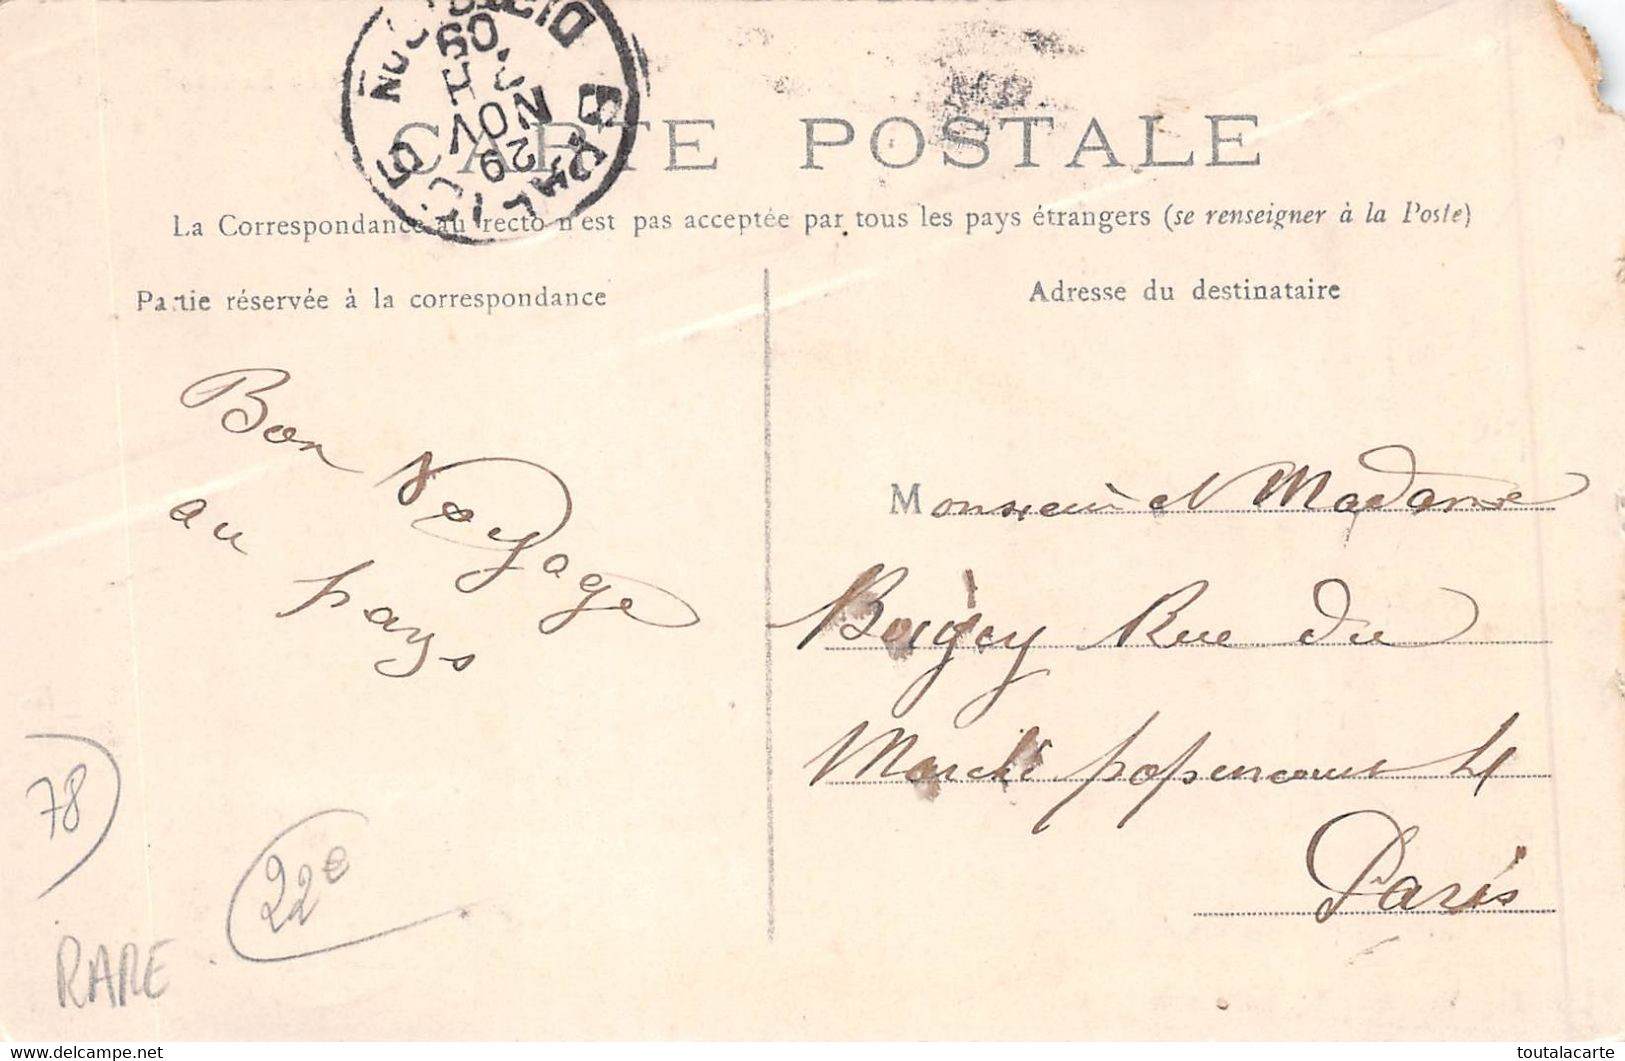 CARTE POSTALE
La Correspondance au recto n'est pas acceptée par tous les pays étrangers (se renseigner à la Poste)
Partie réservée à la correspondance
Adresse du destinataire
29
NOV
09
Bon Voyage
au pays
Monsieur et Madame
Rue du
Marché popincourt 4
Paris
78
22€
RARE
delcampe.net
toutalacarte